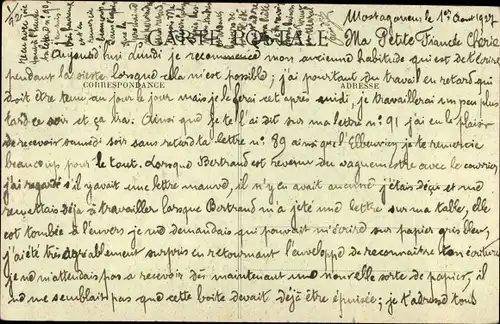 Mostaganem le 1er Aout 1927
CARTE POSTALE
Ma Petite Fiancée Chérie
Aujourd'hui Lundi je recommence mon ancienne habitude qui est de t'écrire
pendant la sieste lorsque cela m'est possible; j'ai pourtant du travail en retard qui
CORRESPONDANCE ADRESSE
doit être tenu au jour le jour mais je le ferai cet après midi, je travaillerai un peu plus
tard ce soir et ça ira. Ainsi que je te l'ai dit sur ma lettre n° 91 j'ai eu le plaisir
de recevoir samedi soir sans retard ta lettre n° 89 ainsi que je te remercie
beaucoup pour le tout. Lorsque Bertrand est revenu du vaguemestre avec le courrier
j'ai regardé s'il y avait une lettre mauve, il n'y en avait aucune j'étais déçu et me
remettais déjà à travailler lorsque Bertrand m'a jeté une lettre sur ma table, elle
est tombée à l'envers je me demandais qui pouvait m'écrire sur papier gris bleu,
j'ai été très agréablement surpris en retournant l'enveloppe de reconnaitre ton écriture
je ne m'attendais pas à recevoir dès maintenant une nouvelle sorte de papier, il
me me semblait pas que cette boite devait déjà être épuisée; je t'adresse tous